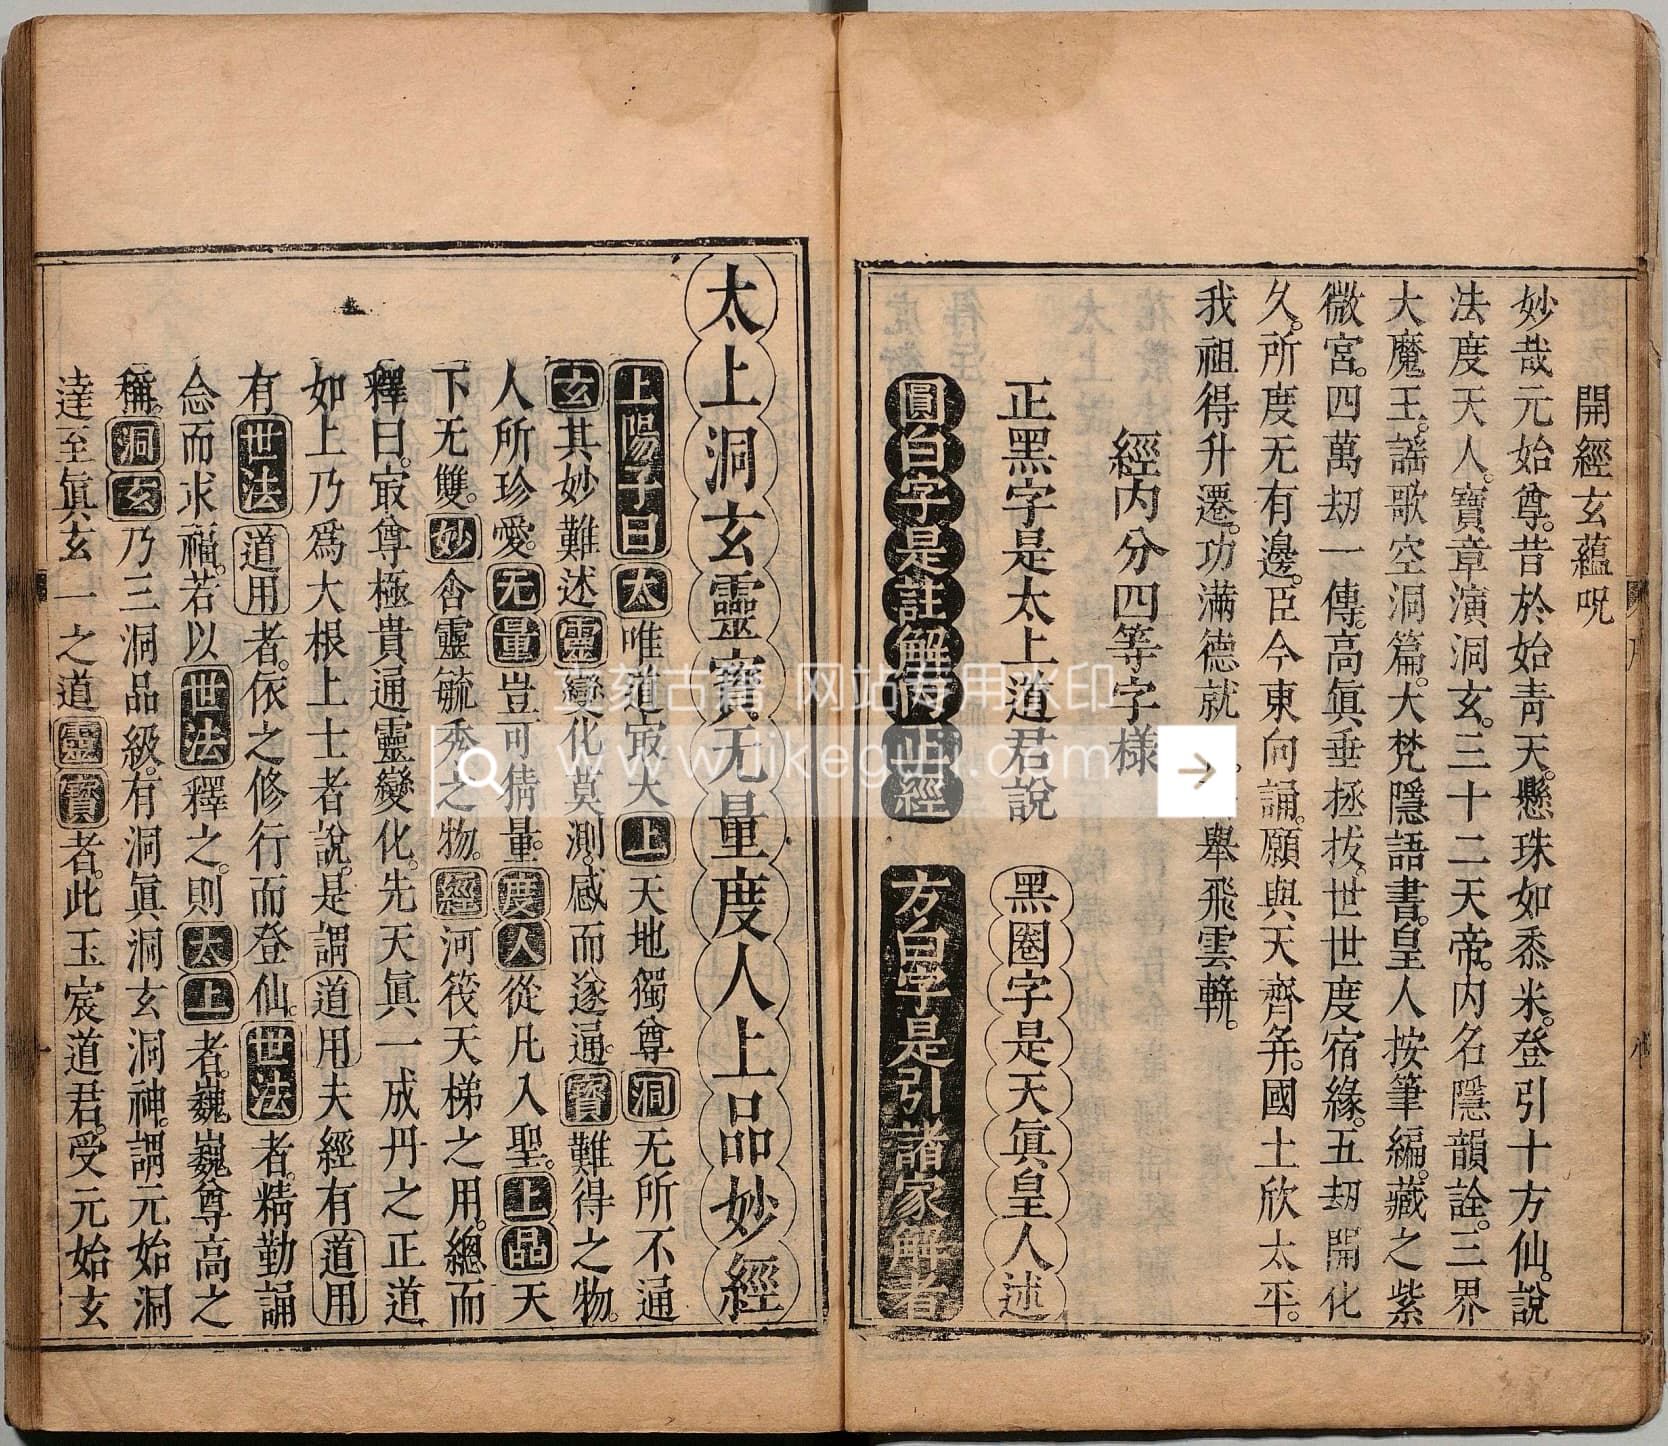 開經玄蘊呪
妙哉元始尊。昔於始青天。懸珠如黍米。登引十方仙。說
法度天人。寶章演洞玄。三十二天帝。內名隱韻詮。三界
大魔王。謠歌空洞篇。大梵隱語書。皇人按筆編。藏之紫
微宮。四萬劫一傳。高眞垂拯拔。世世度宿緣。五劫開化
久。所度无有邊。臣今東向誦。願與天齊并。國土欣太平。
我祖得升遷。功滿德就 舉飛雲軿。
經內分四等字樣
正黑字是太上道君說 黑圈字是天眞皇人述
圓白字是註解內正經 方白字是引諸家解者
太上洞玄靈寶无量度人上品妙經
上陽子曰太唯道最大上天地獨尊洞无所不通
玄其妙難述靈變化莫測。感而遂通。寶難得之物。
人所珍愛。无量豈可猜量。度人從凡入聖。上品天
下无雙。妙含靈毓秀之物。經河筏天梯之用。總而
釋曰。最尊極貴通靈變化。先天眞一成丹之正道
如上乃爲大根上士者說。是謂道用夫經有道用
有世法道用者。依之修行而登仙。世法者。精勤誦
念而求福。若以世法釋之。則太上者。巍巍尊高之
稱。洞玄乃三洞品級。有洞眞洞玄洞神。謂元始洞
達至眞玄一之道靈寶者。此玉宸道君。受元始玄
立刻古籍 网站专用水印
www.likeguji.com